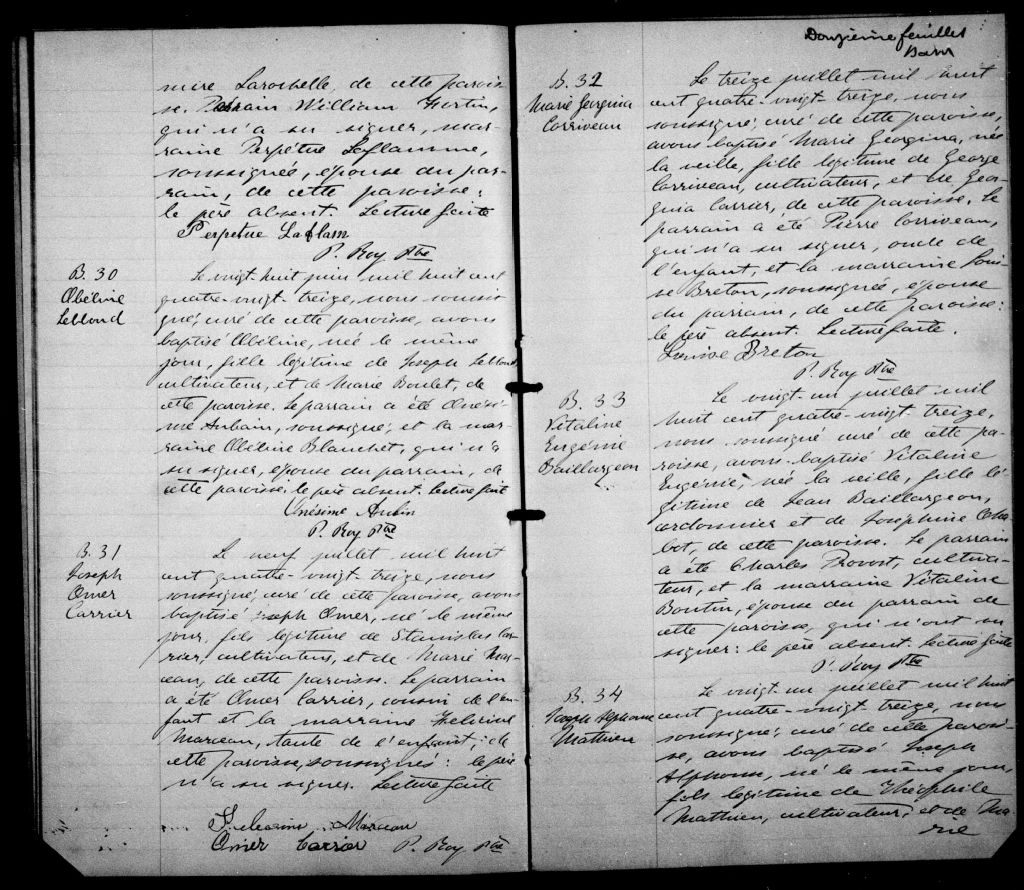 mire Larochelle, de cette parois-
se. Parrain William Fortin,
qui n'a su signer, mar-
raine Perpétue Laflamme,
soussignée, épouse du par-
rain, de cette paroisse:
le père absent. Lecture faite
Perpetue Laflam
P. Roy Ptre
B. 30
Obéline
Leblond
Le vingt-huit juin mil huit cent
quatre-vingt-treize, nous soussi
gné, curé de cette paroisse, avons
baptisé Obéline, née le même
jour, fille légitime de Joseph Leblond,
cultivateur, et de Marie Boulet, de
cette paroisse. Le parrain a été Onési-
me Aubin, soussigné, et la mar-
raine Obéline Blanchet, qui n'a
su signer, épouse du parrain, de
cette paroisse, le père absent. Lecture faite
Onésime Aubin
P. Roy Ptre
B. 31
Joseph
Omer
Carrier
Le neuf juillet mil huit
cent quatre-vingt-treize, nous
soussigné, curé de cette paroisse, avons
baptisé Joseph Omer, né le même
jour, fils légitime de Stanislas Car-
rier, cultivateur, et de Marie Mar-
ceau, de cette paroisse. Le parrain
a été Omer Carrier, cousin de l'en-
fant et la marraine
Marceau, tante de l'enfant, de
cette paroisse, soussignés: le père
n'a su signer. Lecture faite
Marceau
Omer Carrier P. Roy Ptre
Douzième feuillet
B. 32
Marie Georgina
Corriveau
Le treize juillet mil huit
cent quatre-vingt-treize, nous
soussigné, curé de cette paroisse,
avons baptisé Marie Georgina, née
la veille, fille légitime de George
Corriveau, cultivateur, et de Geor-
gina Carrier, de cette paroisse. Le
parrain a été Pierre Corriveau,
qui n'a su signer, oncle de
l'enfant, et la marraine Loui-
se Breton, soussignée, épouse
du parrain, de cette paroisse:
le père absent. Lecture faite.
Louise Breton
P. Roy Ptre
B. 33
Vitaline
Eugénie
Baillargeon
Le vingt-un juillet mil
huit cent quatre-vingt-treize,
nous soussigné curé de cette pa-
roisse, avons baptisé Vitaline
Eugénie, née la veille, fille lé-
gitime de Jean Baillargeon,
cordonnier et de Joséphine Cha-
bot, de cette paroisse. Le parrain
a été Charles Provost, cultiva-
teur, et la marraine Vitaline
Boutin, épouse du parrain de
cette paroisse, qui n'ont su
signer: le père absent. Lecture faite
P. Roy Ptre
B. 34
Joseph Alphonse
Mathieu
Le vingt-un juillet mil huit
cent quatre-vingt-treize, nous
soussigné, curé de cette parois-
se, avons baptisé Joseph
Alphonse, né le même jour,
fils légitime de Théophile
Mathieu, cultivateur, et de Ma-
rie